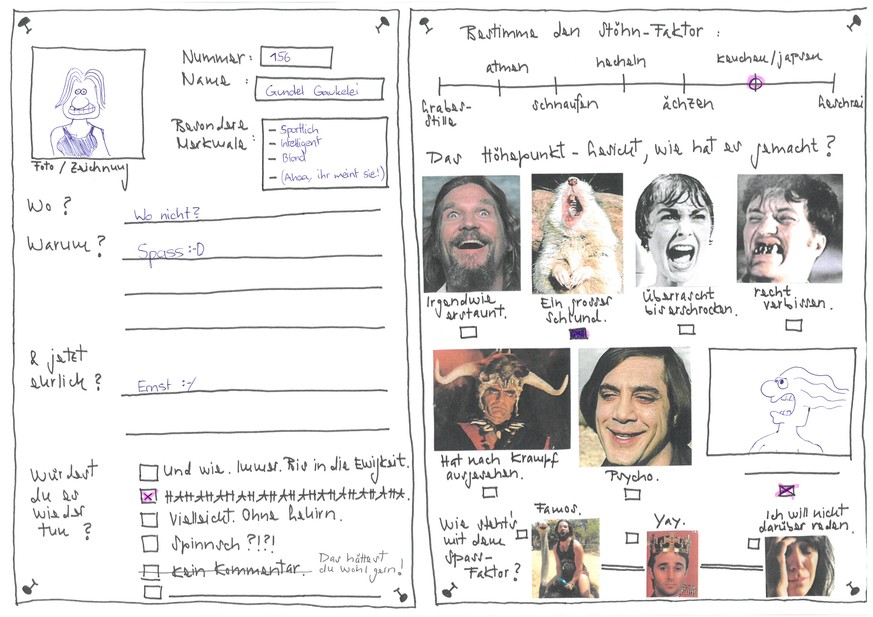 Nummer: 156
Name: Gundel Gaukelei
Besondere Merkmale:
- Sportlich
- Intelligent
- Blond
- (Ahaa, ihr meint sie!)
Foto / Zeichnung
Wo? Wo nicht?
Warum? Spass :-D
& jetzt
ehrlich? Ernst :-/
Würdest
du es
wieder
tun?
Und wie. Immer. Bis in die Ewigkeit.
HAHAHAHAHAHAHAHAHAHA.
Vielleicht. Ohne Gehirn.
Spinnsch ?!?!
Kein Kommentar. Das hättest
du wohl gern!
Bestimme den Stöhn-Faktor:
atmen
hecheln
keuchen/japsen
Grabes-
stille
schnaufen
ächzen
Geschrei
Das Höhepunkt-Gesicht, wie hat es gemacht?
Irgendwie
erstaunt.
Ein grosser
Schlund.
Überrascht
bis erschrocken.
recht
verbissen.
Hat nach Krampf
ausgesehen.
Psycho.
Wie steht's
mit dem
Spass-
Faktor?
Famos.
Yay.
Ich will nicht
darüber reden.